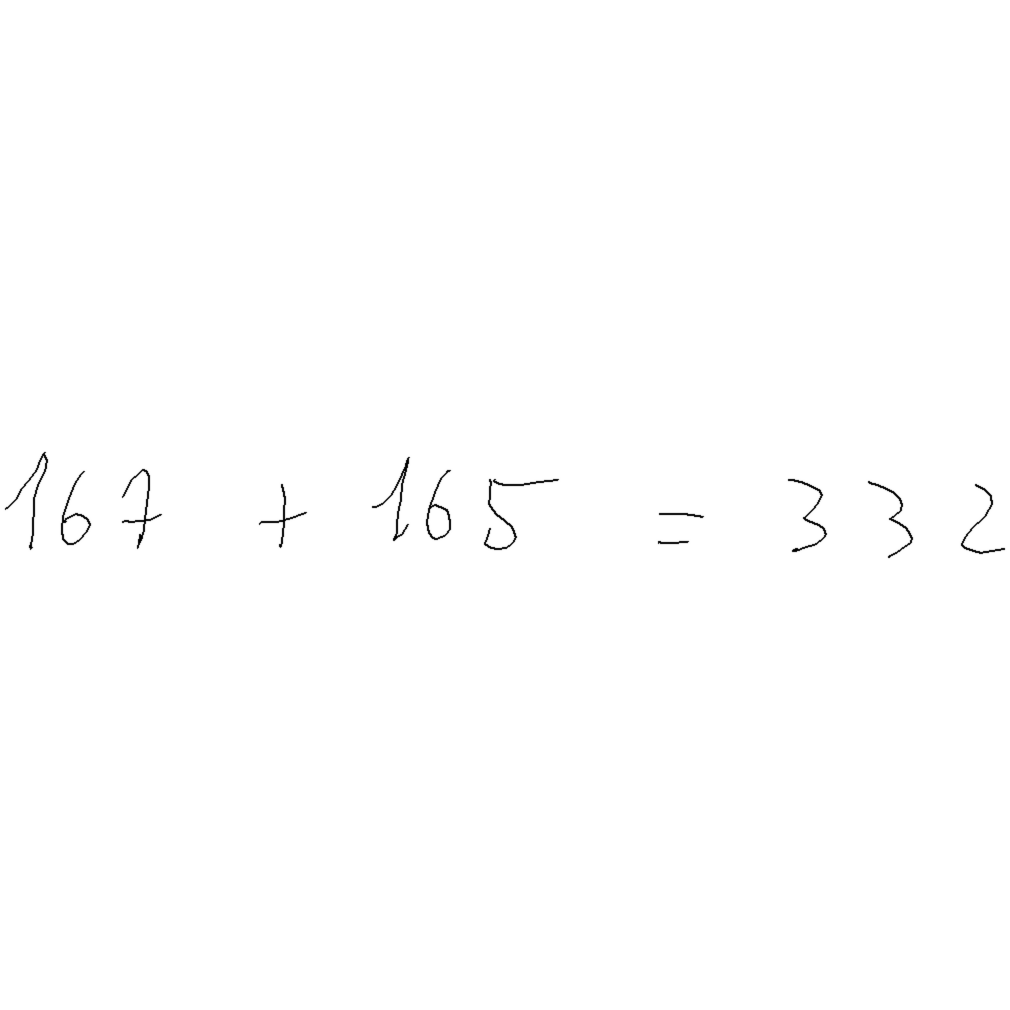 167 + 165 = 332